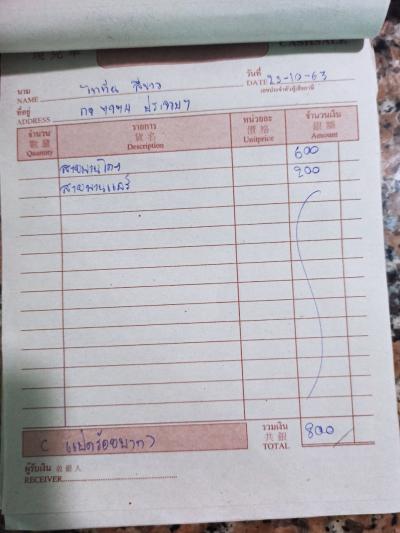 CASH SALE
นาม
NAME
วันที่
DATE 25-10-63
เลขประจำตัวผู้เสียภาษี
ที่อยู่
ADDRESS
จำนวน รายการ หน่วยละ จำนวนเงิน
數量 貨名 價格 銀額
Quantity Description Unitprice Amount
สายพานไดฯ 600
สายพานแอร์ 200
( แปดร้อยบาท )
รวมเงิน
共銀
TOTAL 800
ผู้รับเงิน 收銀人
RECEIVER